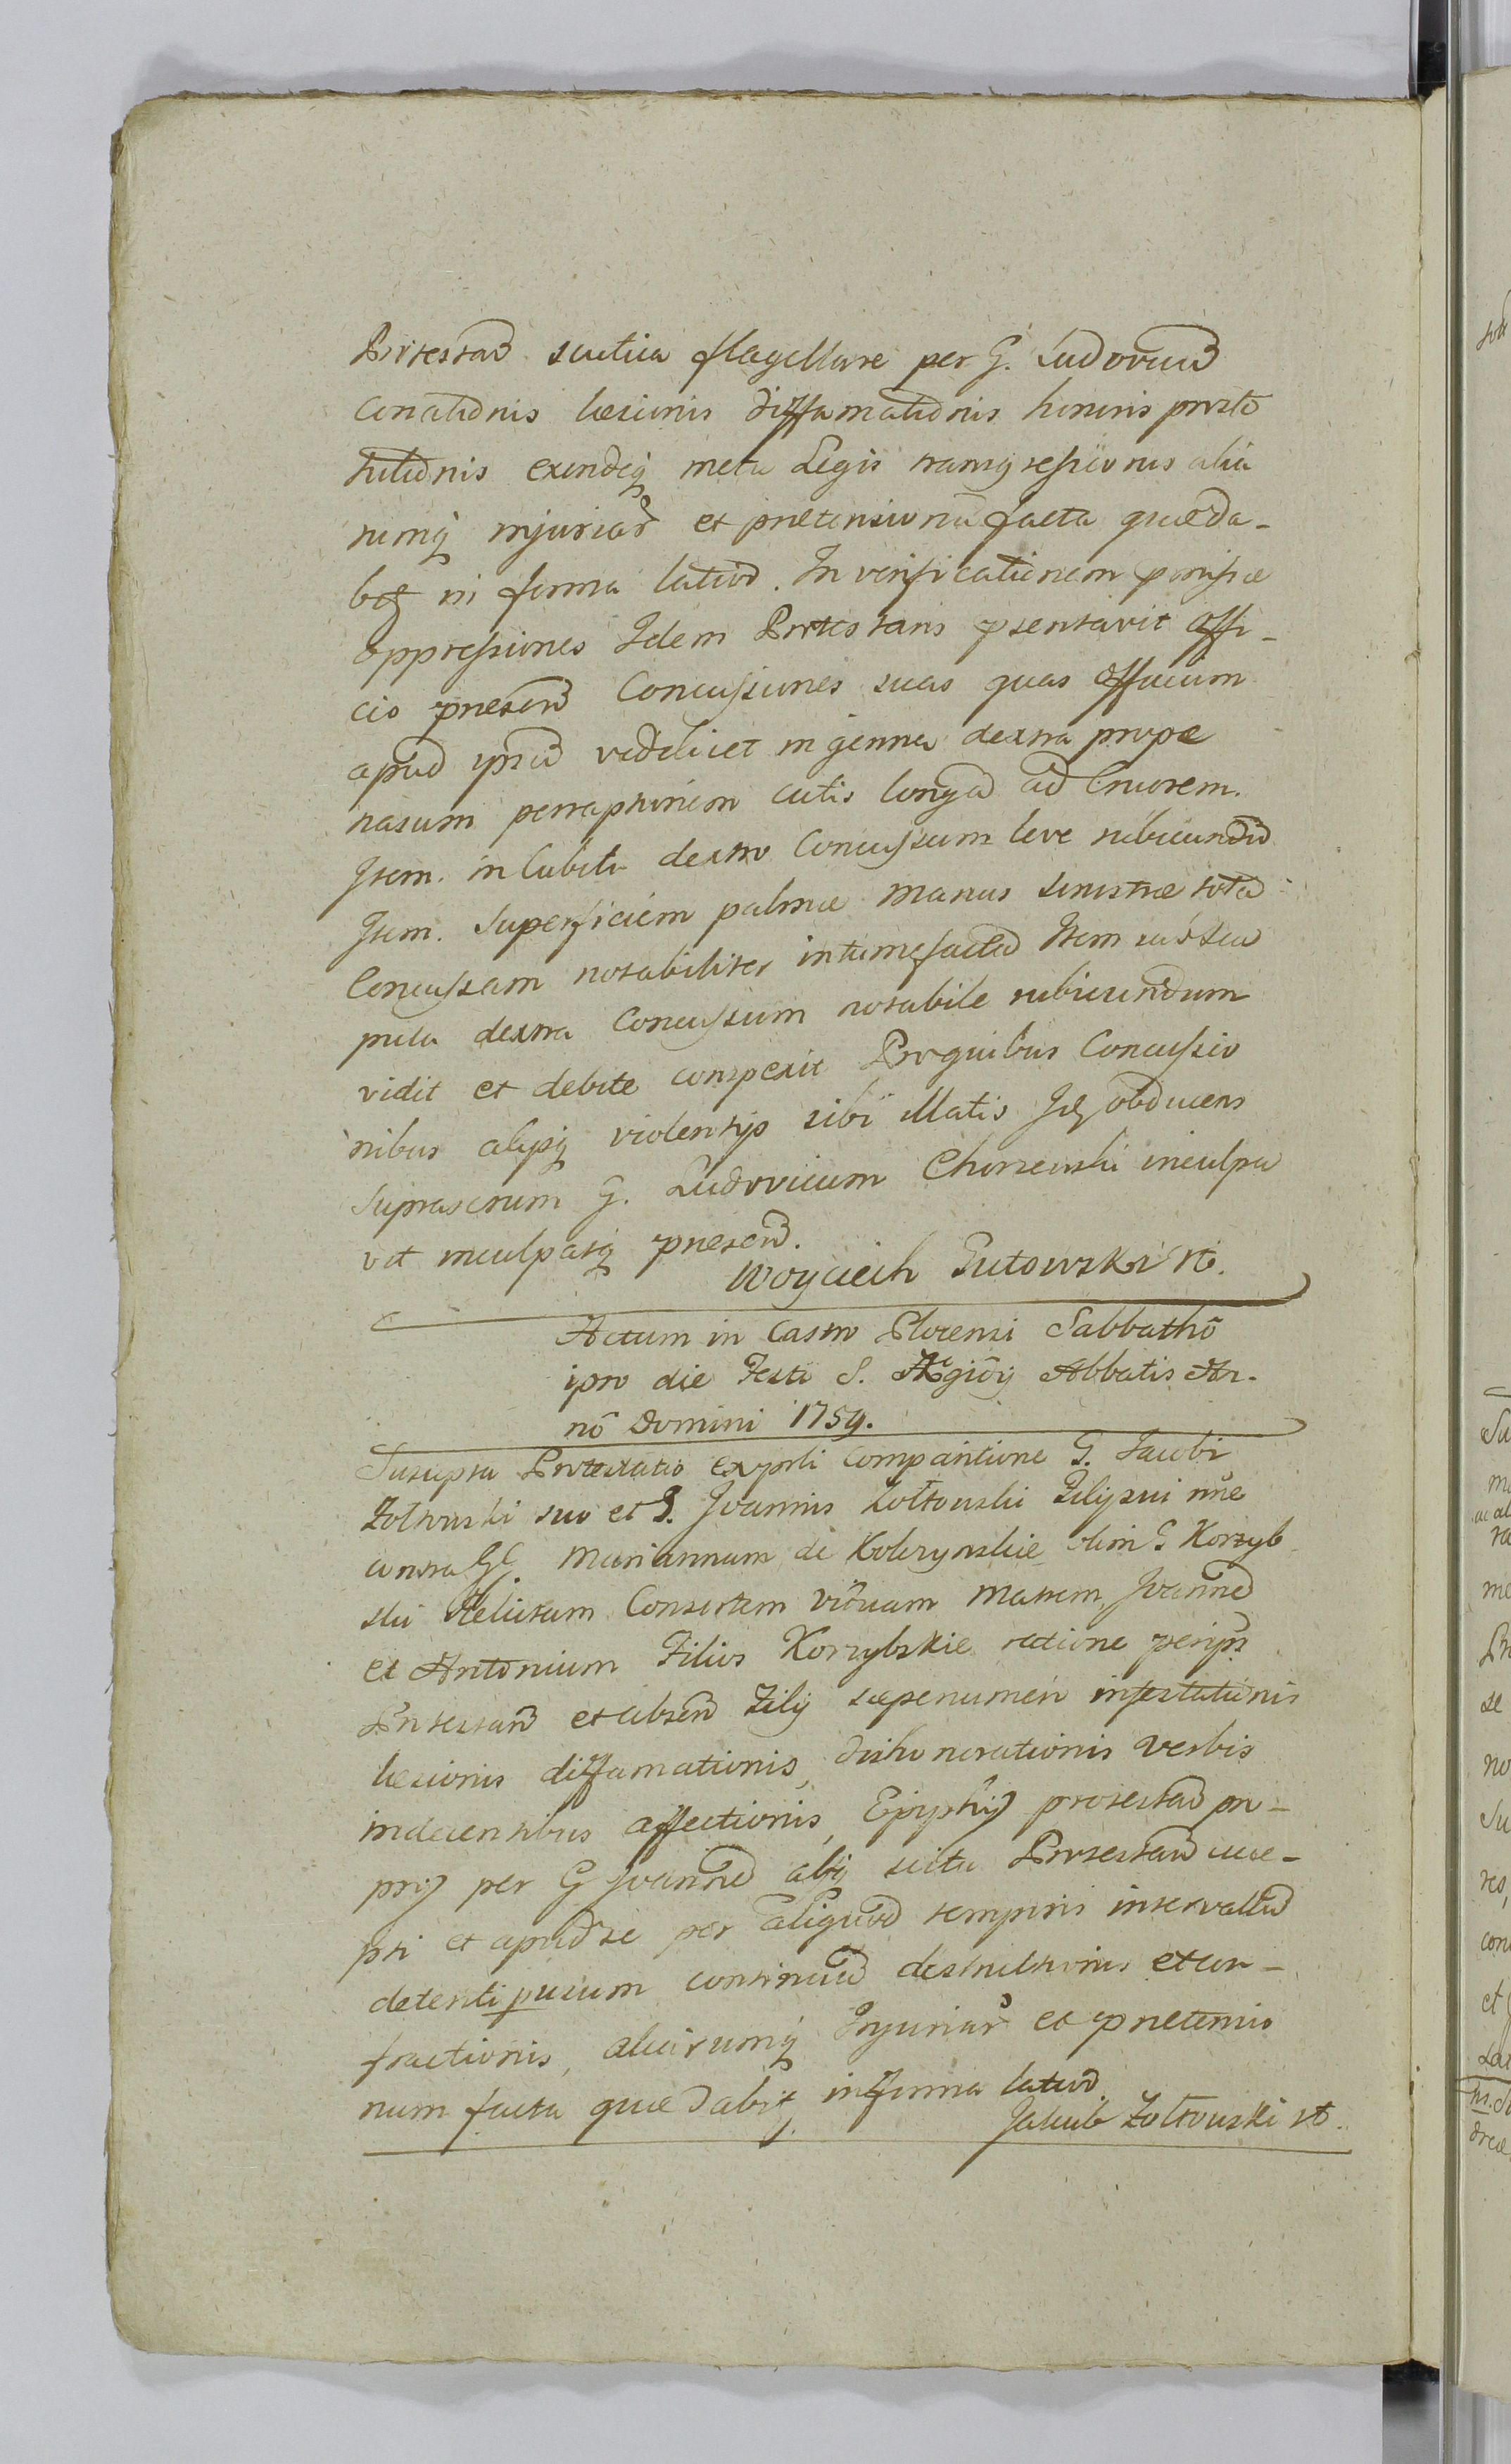 Protestan̄ scutica flagellare per G. Ludovicum̄
Conatiōnis læsionis diffamatiōnis honoris prosti
tutiōnis exindeq̨ metu Legis transgressionis alia
rumq̨ injuriar̄ et prætensionū facta quæda-
bit in forma latiōr̄. In verificationem præmissæ
oppressiones Idem Protestans psentavit offi-
cio præsen̄ Concussiones suas quas officium
apud ipsum̄ videlicet in genna dextra prope
nasum cutis longam̄ ad Cruorem.
Item. in Cubito dextro Concussum leve rubicundum̄
Item. Superficiem palmæ manus sinistræ totam̄
Concussam notabiliter intumefactam̄ Item in sca
pula dextra Concussum notabile rubicundum
vidit et debite conspexit Pro quibus Concussio
nibus alysq̨ violentys sibi illatis obducens
suprascrum G. Ludovicum Chorzewski inculpa
vit inculpatq̨ præsen̄.
Woyciech Gutowski
Actum in Castro Plocensi Sabbathō
ipso die Festi S. Ægidÿ Abbatis An-
nō Domini 1759.
Suscepta Protestatio ex psnli Comparitione G. Jacobi
Zołtowski suo et G. Joannis Zołtowski Filÿ sui nne
contra GG. Mariannam de Kobrzynskie olim G. Korzyb
ski Relictam Consortem viduam matrem, Joannem̄
et Antonium Filios Korzybskie ratione per ips̄
Protestan̄ et absen̄ Filÿ sæpenumero infestationis
læsionis diffamationis, dishonorationis verbis
indecentibus affectionis, protestan̄ pro-
prij per G Joannem̄ absq̨ scitu Protestan̄ acce-
pti et apud se per aliquod temporis intervallum̄
detenti continuum̄ destructionis et con-
fractionis, aliarumq̨ Injuriar̄ et prætensio
num facta quæ dabit, in forma latiōr̄.
Jakub Zołtowski